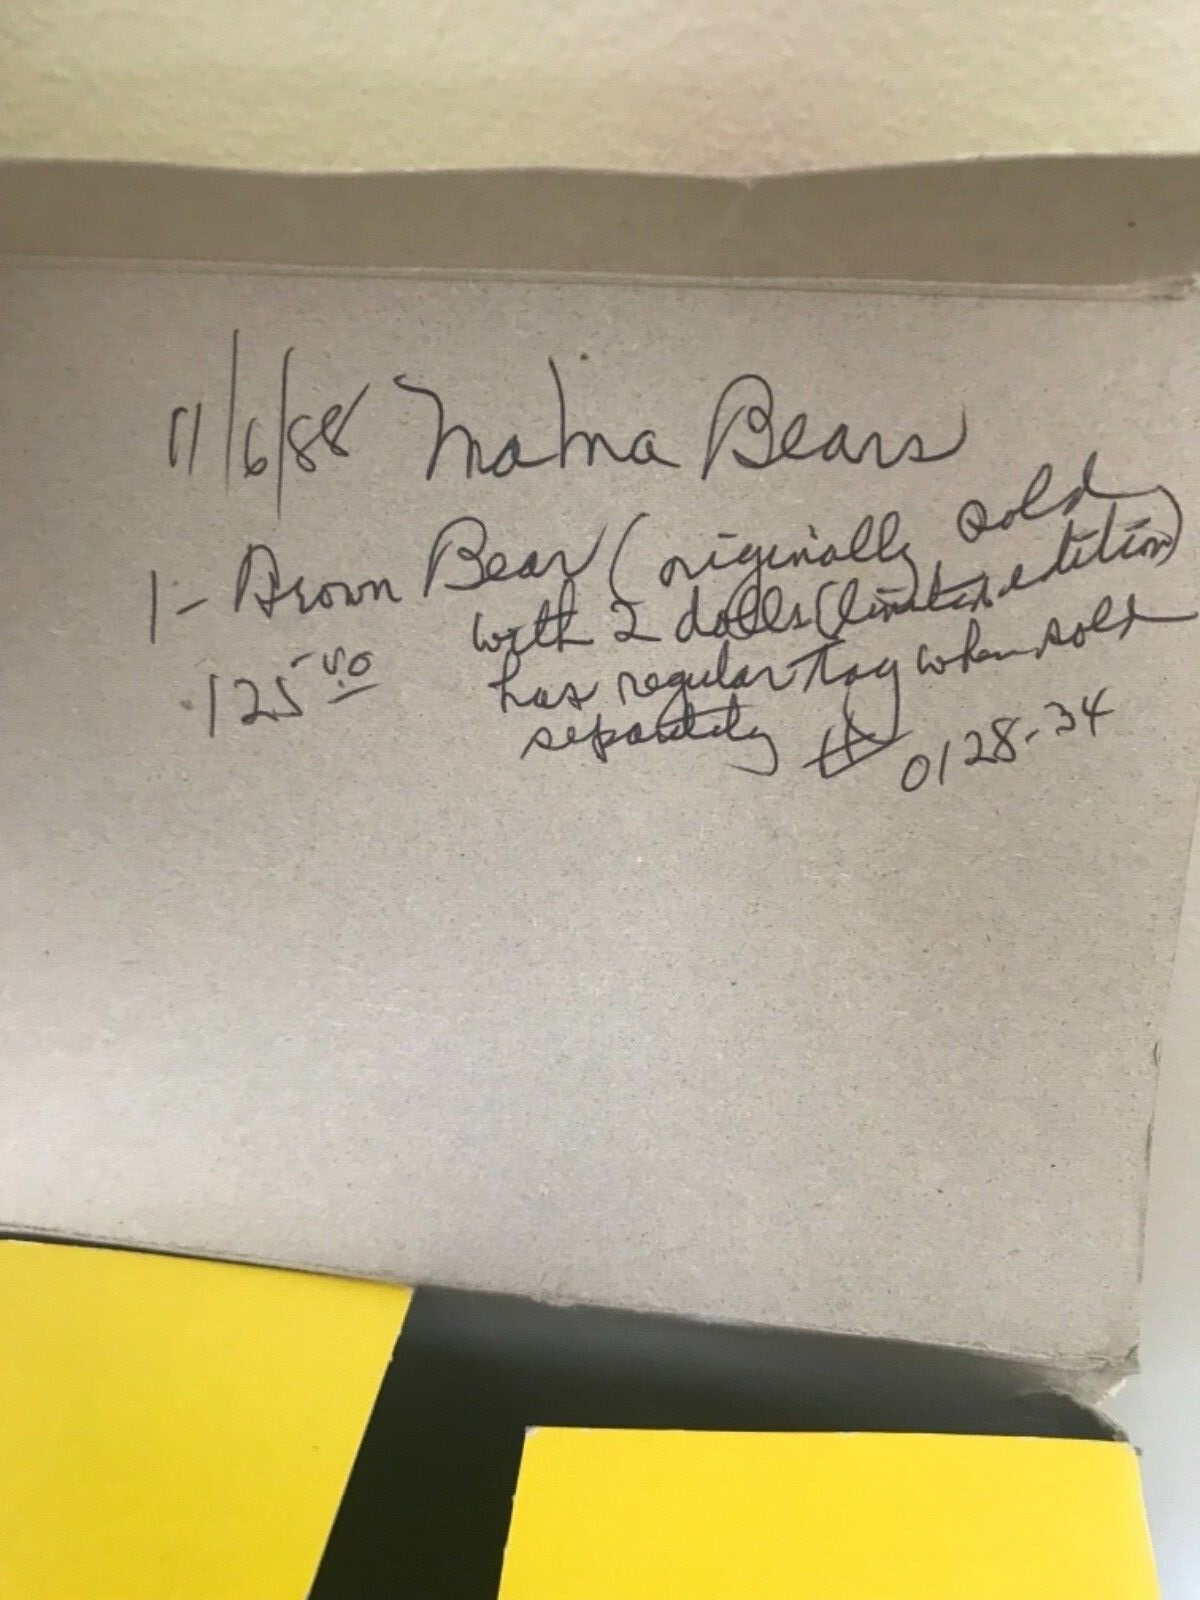 11/6/88 Mama Bears
1- Brown Bear (originally sold
with 2 dolls (limited edition)
125.00 has regular tag when sold
separately # 0128-34